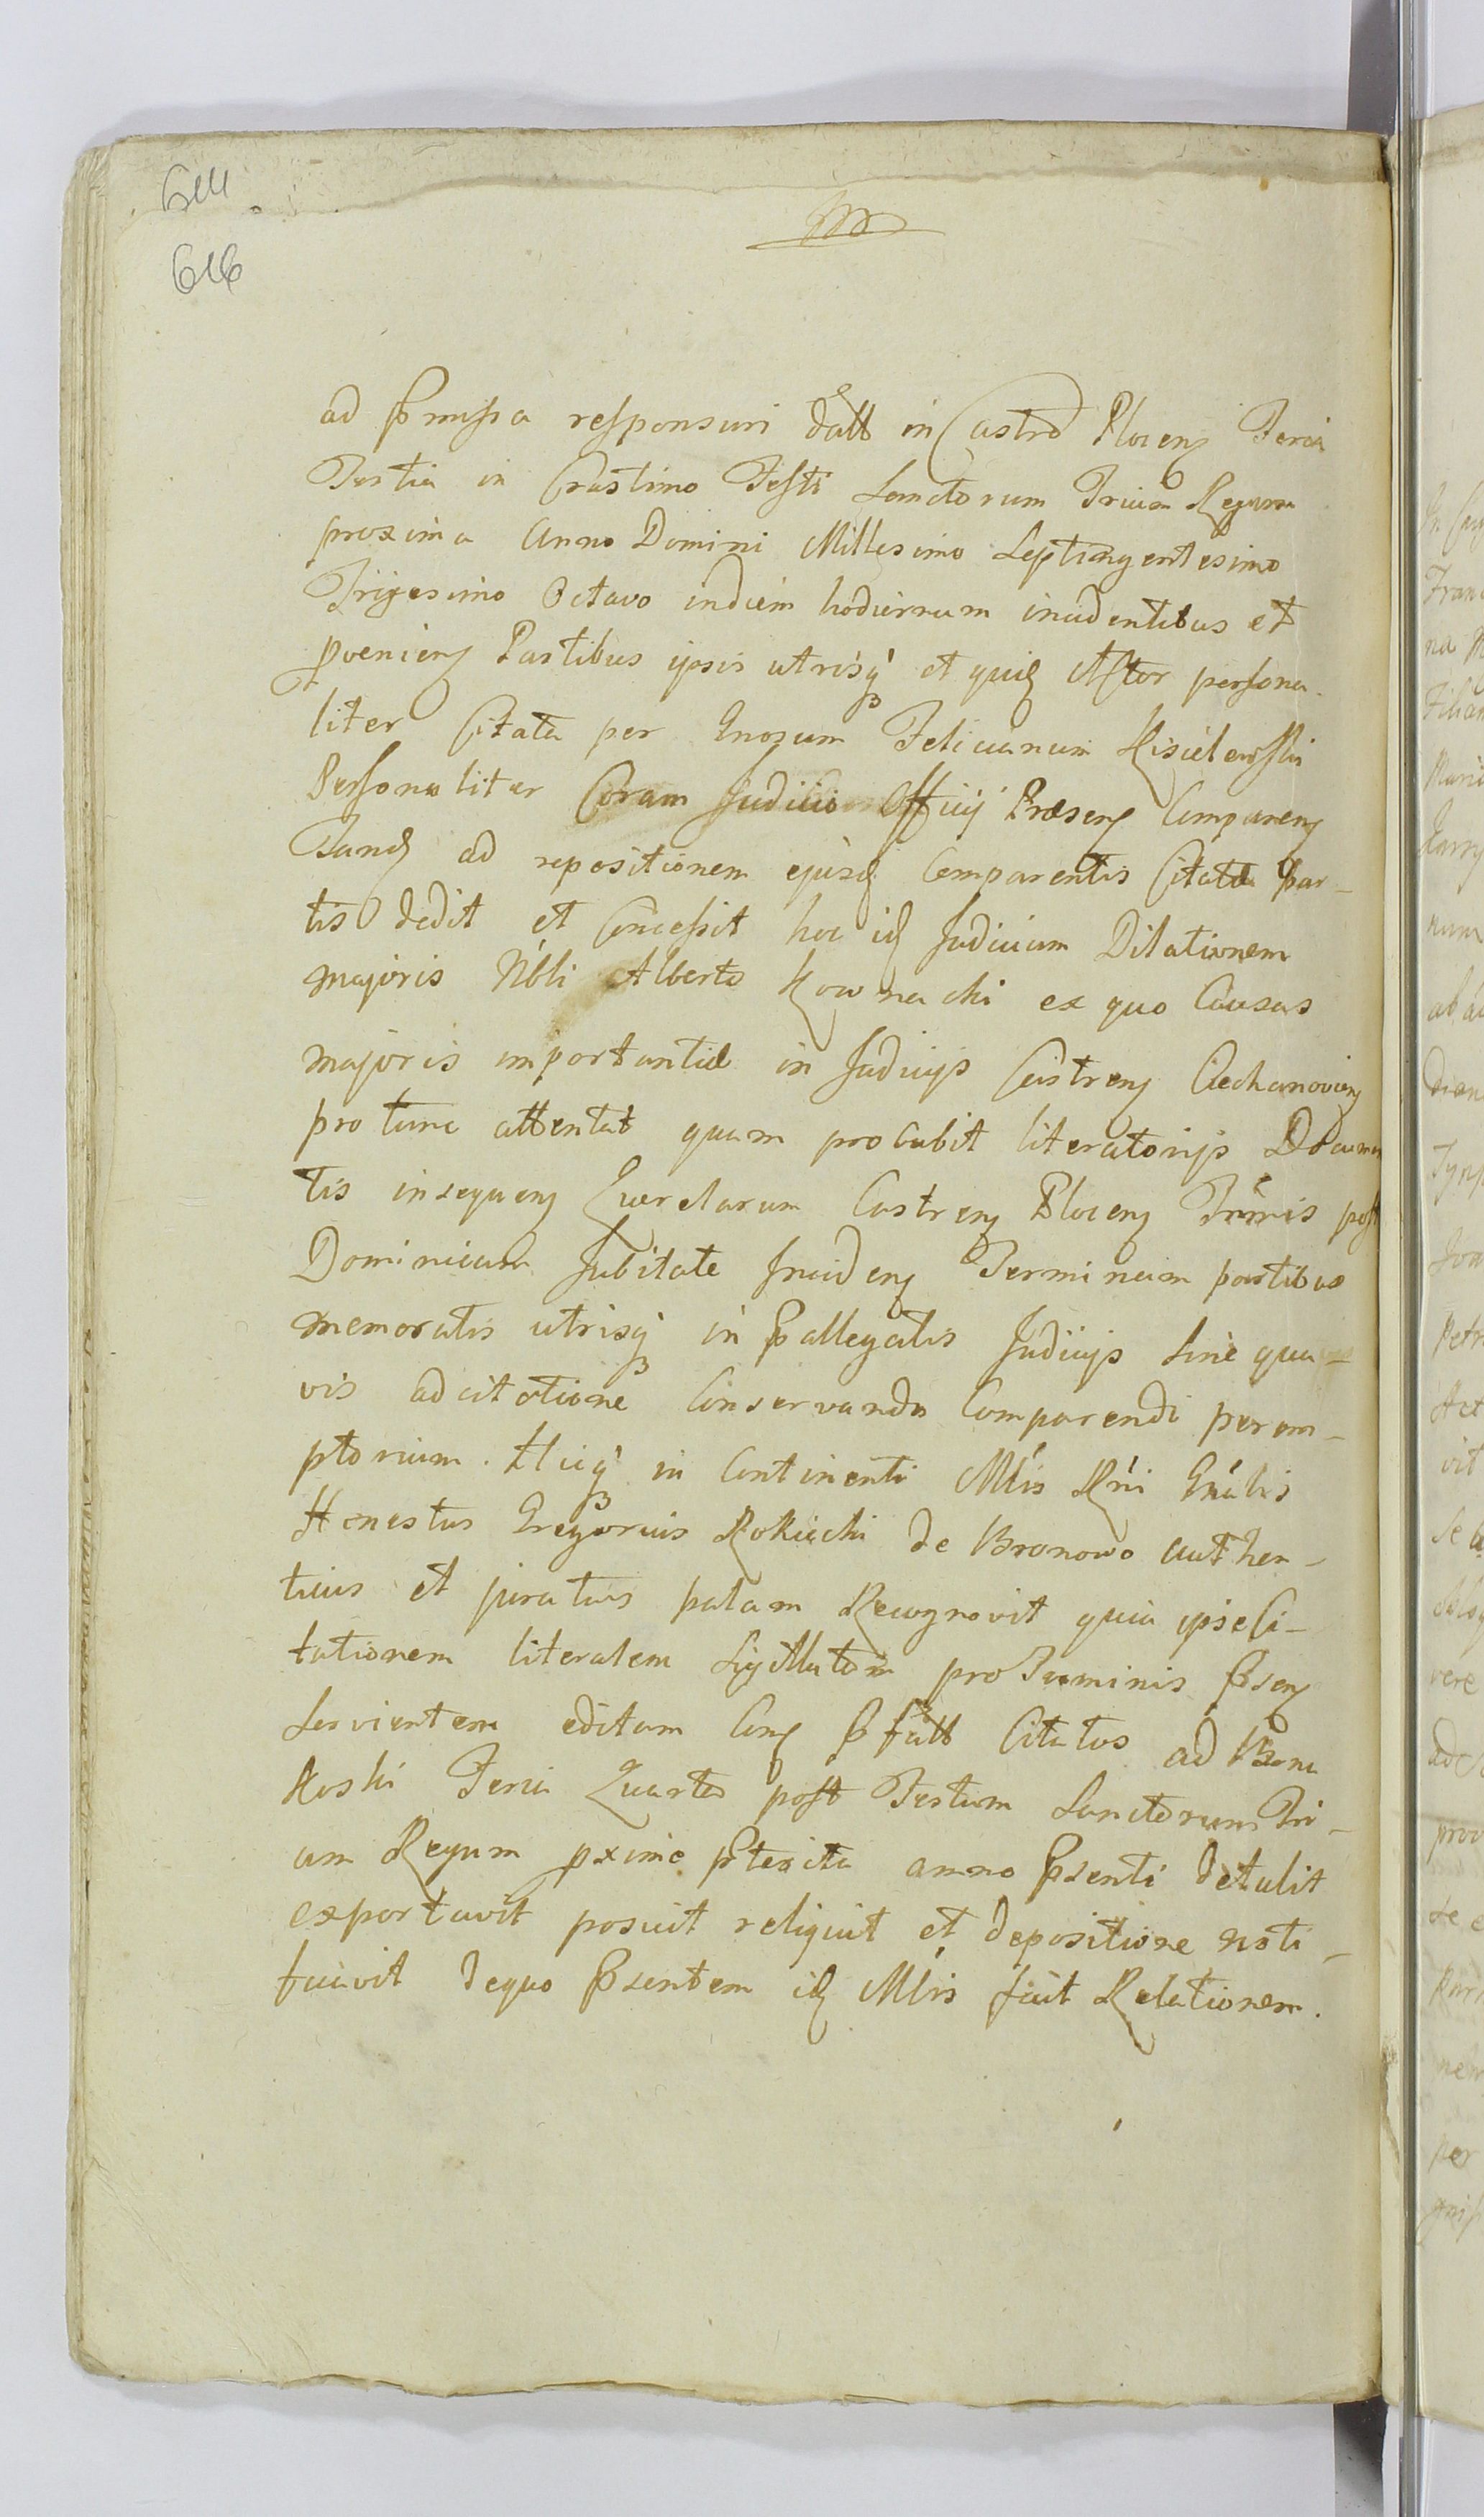 616
ad p̃missa responsuri datt in Castro Plocen̨ Feria
Tertia in Crastino Festi Sanctorum Trium Regum
proxima Anno Domini Millesimo Septingentesimo
Trigesimo Octavo indiem hodiernam incidentibus et
pvenien̨ Partibus ipsis utrisq̨ et quid Actor persona-
liter Citata per Gnosum Felicianum Kisielewski
Personaliter Coram Judicio Officij Præsen̨ Comparen̨
Tand̨ ad repositionem ejusd̨ Comparentis Citatæ par-
tis dedit et Concessit hoc id̨ Judicium Dilationem
majoris Nb́li Alberto Kownacki ex quo Causas
majoris importantiæ in Judicijs Castren̨ Ciechanovien̨
pro tunc attentat quam probabit literatorijs Docume
tis insequen̨ Querelarum Castren̨ Plocen̨ Trḿis post
Dominicam Jubilate Inciden̨ Terminum partibus
memoratis utrisq̨ in p̃allegatis Judicijs Sine qua-
vis adcitatione Conservando Comparendi perem-
ptorium. Hicq̨ in Continenti Mlís Rńi Gnális
Honestus Gregorius Rokicki de Bronowo authen-
ticus et juratus palam Recognovit quia ipse Ci-
tationem literalem Sigillatam pro Terminis p̃sen̨
Servientem editam Con̨ p̃fatt Citatos ad Bona
Koski Feria Quarta post Festum Sanctorum Tri-
um Regum pxime p̃terita anno p̃senti detulit
exportavit posuit reliquit et depositione noti-
ficavit dequo p̃sentem id̨ Mlís fecit Relationem.